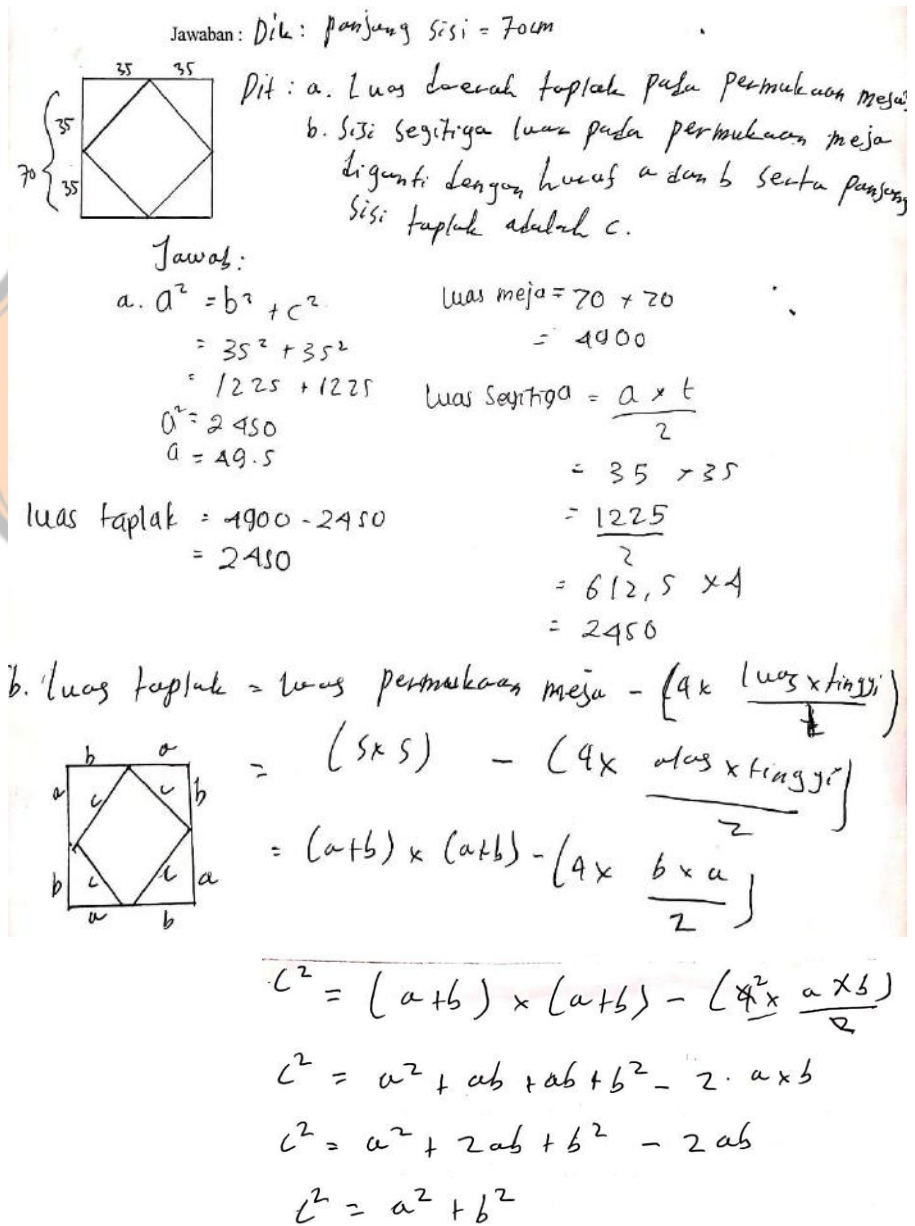 Jawaban : Dik : panjang sisi = 70cm
35 35
70 35 35
Dit : a. Luas daerah taplak pada permukaan meja
b. Sisi segitiga luar pada permukaan meja
diganti dengan huruf a dan b serta panjang
sisi taplak adalah c.
Jawab :
a. a² = b² + c²
= 35² + 35²
= 1225 + 1225
a² = 2450
a = 49.5
luas taplak = 4900 - 2450
= 2450
luas meja = 70 x 70
= 4900
luas segitiga = a x t / 2
= 35 x 35
= 1225 / 2
= 612,5 x 4
= 2450
b. luas taplak = luas permukaan meja - (4x luas x tinggi)
= (s x s) - (4x alas x tinggi / 2)
= (a+b) x (a+b) - (4x b x a / 2)
b a
a c c b
b c c a
a b
c² = (a+b) x (a+b) - (4² x a x b / 2)
c² = a² + ab + ab + b² - 2. a x b
c² = a² + 2ab + b² - 2ab
c² = a² + b²